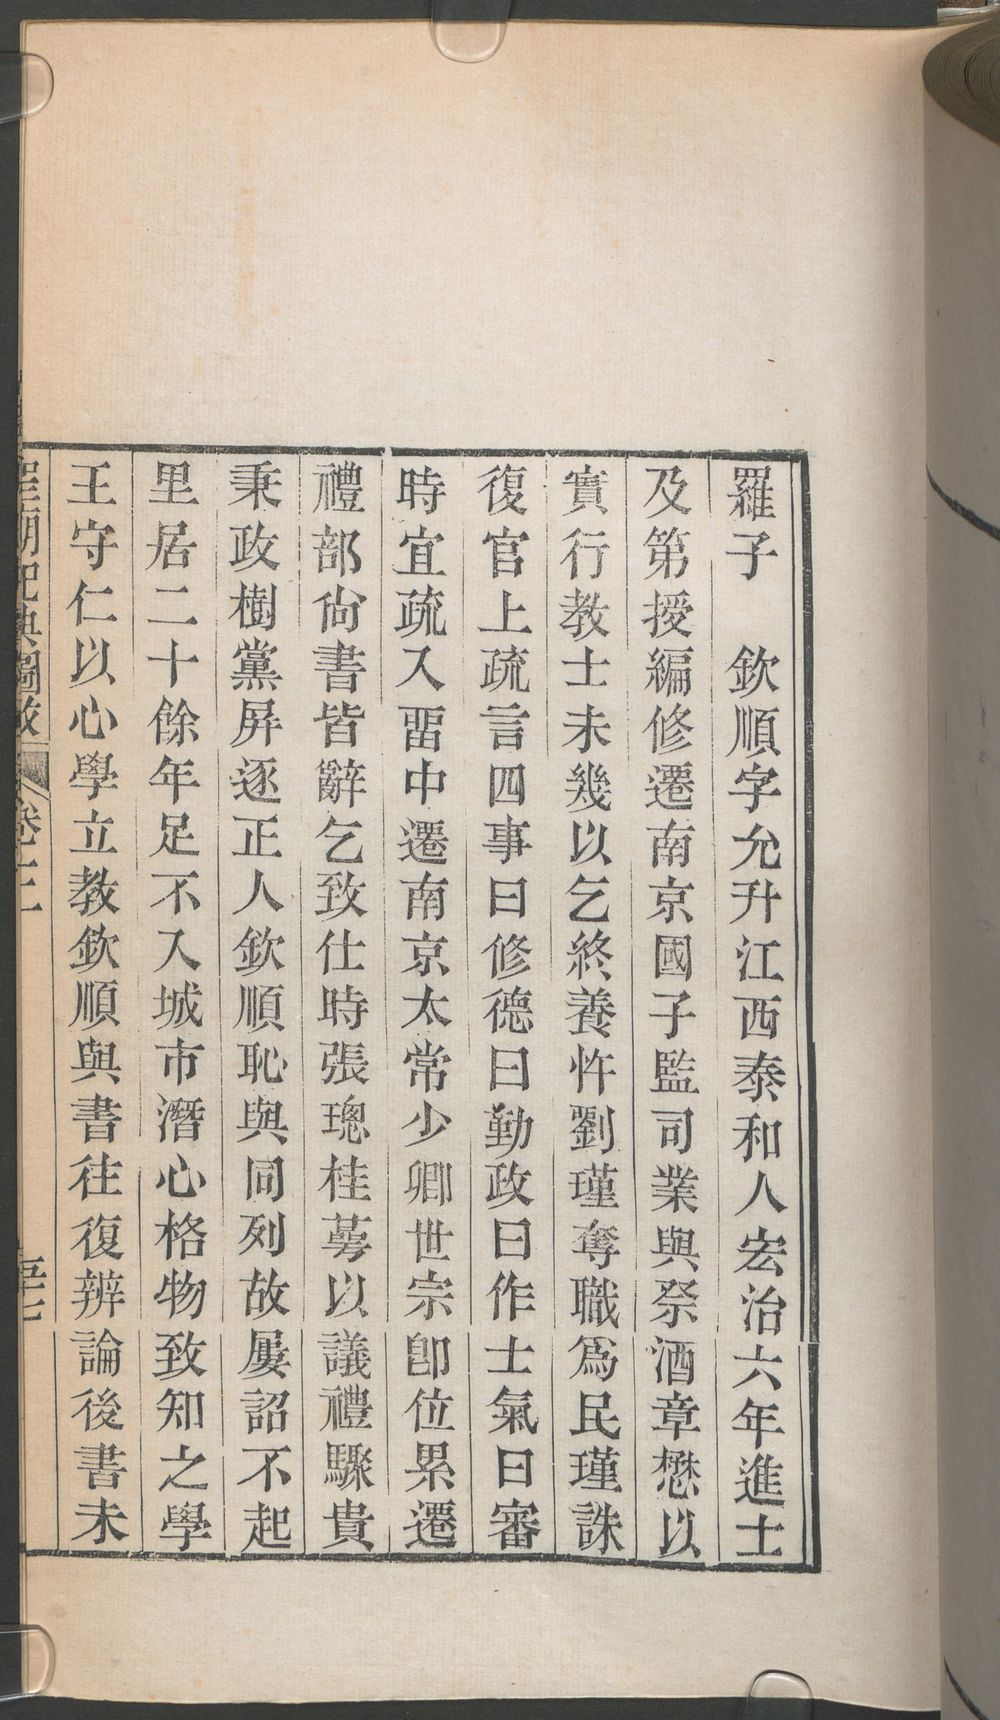 羅子　欽順字允升江西泰和人宏治六年進士
及第授編修遷南京國子監司業與祭酒章懋以
實行教士未幾以乞終養忤劉瑾奪職爲民瑾誅
復官上疏言四事曰修德曰勤政曰作士氣曰審
時宜疏入畱中遷南京太常少卿世宗卽位累遷
禮部尙書皆辭乞致仕時張璁桂萼以議禮驟貴
秉政樹黨屏逐正人欽順恥與同列故屢詔不起
里居二十餘年足不入城市潛心格物致知之學
王守仁以心學立教欽順與書往復辨論後書未
聖廟祀典圖攷　卷三　五七